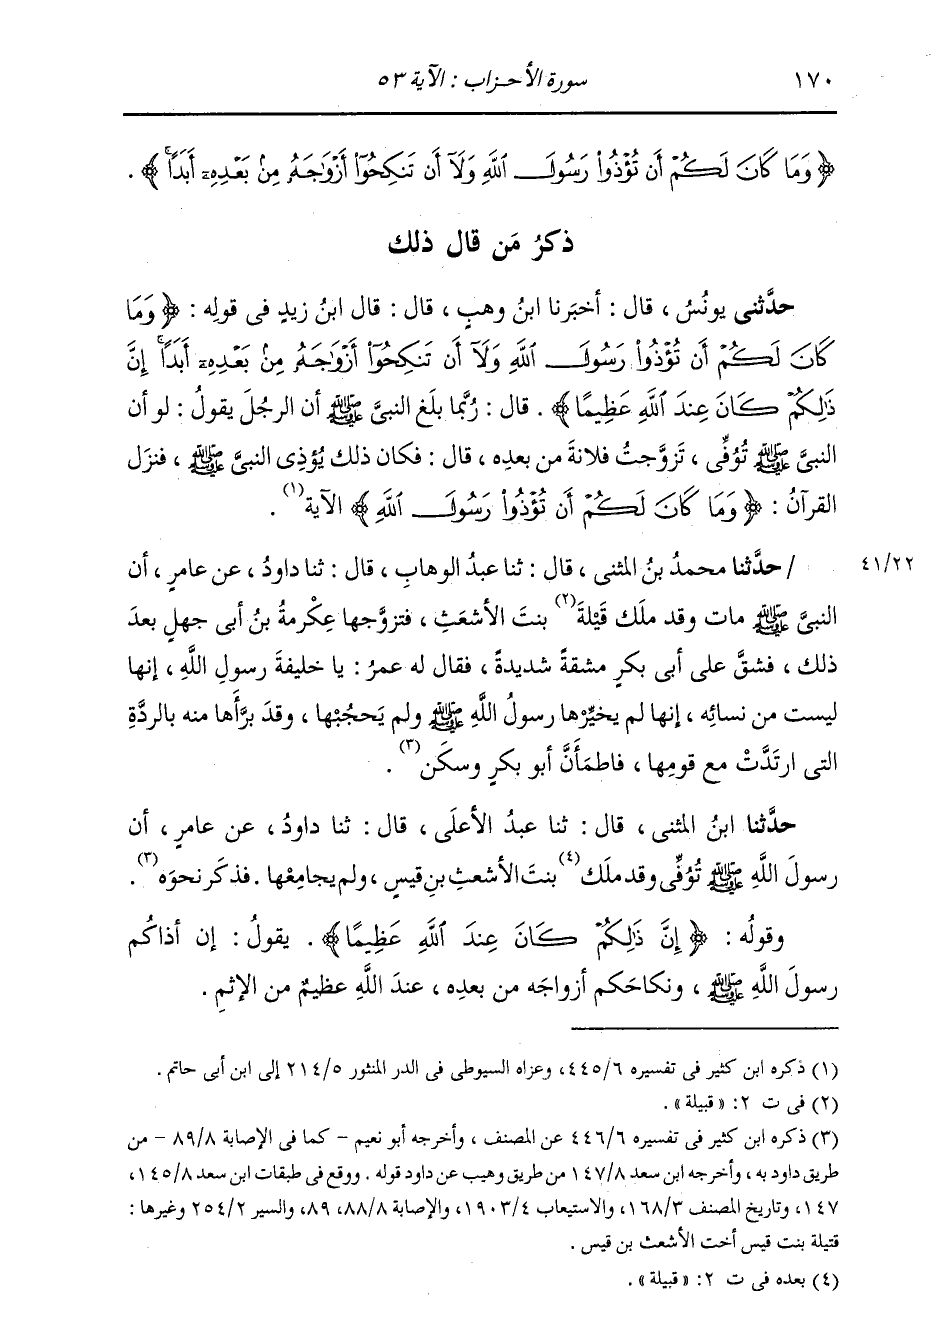 ١٧٠ سورة الأحزاب : الآية ٥٣
﴿ وَمَا كَانَ لَكُمْ أَن تُؤْذُوا۟ رَسُولَ ٱللَّهِ وَلَآ أَن تَنكِحُوٓا۟ أَزْوَٰجَهُۥ مِنۢ بَعْدِهِۦٓ أَبَدًا ۚ ﴾ .
ذكرُ مَن قال ذلك
حدَّثنى يونُسُ ، قال : أخبَرنا ابنُ وهبٍ ، قال : قال ابنُ زيدٍ فى قولِه : ﴿ وَمَا
كَانَ لَكُمْ أَن تُؤْذُوا۟ رَسُولَ ٱللَّهِ وَلَآ أَن تَنكِحُوٓا۟ أَزْوَٰجَهُۥ مِنۢ بَعْدِهِۦٓ أَبَدًا ۚ إِنَّ
ذَٰلِكُمْ كَانَ عِندَ ٱللَّهِ عَظِيمًا ﴾ . قال : رُبَّما بلَغ النبىَّ ﷺ أن الرجلَ يقولُ : لو أن
النبىَّ ﷺ تُوُفِّى ، تزوَّجتُ فلانةَ من بعدِه ، قال : فكان ذلك يُؤذِى النبىَّ ﷺ ، فنزَل
القرآنُ : ﴿ وَمَا كَانَ لَكُمْ أَن تُؤْذُوا۟ رَسُولَ ٱللَّهِ ﴾ الآية(١) .
٤١/٢٢ / حدَّثنا محمدُ بنُ المثنى ، قال : ثنا عبدُ الوهابِ ، قال : ثنا داودُ ، عن عامرٍ ، أن
النبىَّ ﷺ مات وقد ملَك قَيْلةَ(٢) بنتَ الأشعَثِ ، فتزوَّجها عِكْرمةُ بنُ أبى جهلٍ بعدَ
ذلك ، فشقَّ على أبى بكرٍ مشقةً شديدةً ، فقال له عمرُ : يا خليفةَ رسولِ اللَّهِ ، إنها
ليست من نسائِه ، إنها لم يخيِّرْها رسولُ اللَّهِ ﷺ ولم يَحجُبْها ، وقد برَّأَها منه بالردَّةِ
التى ارتَدَّتْ مع قومِها ، فاطمَأَنَّ أبو بكرٍ وسكَن(٣) .
حدَّثنا ابنُ المثنى ، قال : ثنا عبدُ الأعلَى ، قال : ثنا داودُ ، عن عامرٍ ، أن
رسولَ اللَّهِ ﷺ تُوُفِّى وقد ملَك(٤) بنتَ الأشعثِ بنِ قيسٍ ، ولم يجامِعْها . فذكَر نحوَه(٣) .
وقولُه : ﴿ إِنَّ ذَٰلِكُمْ كَانَ عِندَ ٱللَّهِ عَظِيمًا ﴾ . يقولُ : إن أذاكُم
رسولَ اللَّهِ ﷺ ، ونكاحَكم أزواجَه من بعدِه ، عندَ اللَّهِ عظيمٌ من الإثمِ .
(١) ذكره ابن كثير فى تفسيره ٤٤٥/٦ ، وعزاه السيوطى فى الدر المنثور ٢١٤/٥ إلى ابن أبى حاتم .
(٢) فى ت ٢ : « قبيلة » .
(٣) ذكره ابن كثير فى تفسيره ٤٤٦/٦ عن المصنف ، وأخرجه أبو نعيم – كما فى الإصابة ٨٩/٨ – من
طريق داود به ، وأخرجه ابن سعد ١٤٧/٨ من طريق وهيب عن داود قوله . ووقع فى طبقات ابن سعد ١٤٥/٨ ،
١٤٧ ، وتاريخ المصنف ١٦٨/٣ ، والاستيعاب ١٩٠٣/٤ ، والإصابة ٨٨/٨ ، ٨٩ ، والسير ٢٥٤/٢ وغيرها :
قتيلة بنت قيس أخت الأشعث بن قيس .
(٤) بعده فى ت ٢ : « قبيلة » .